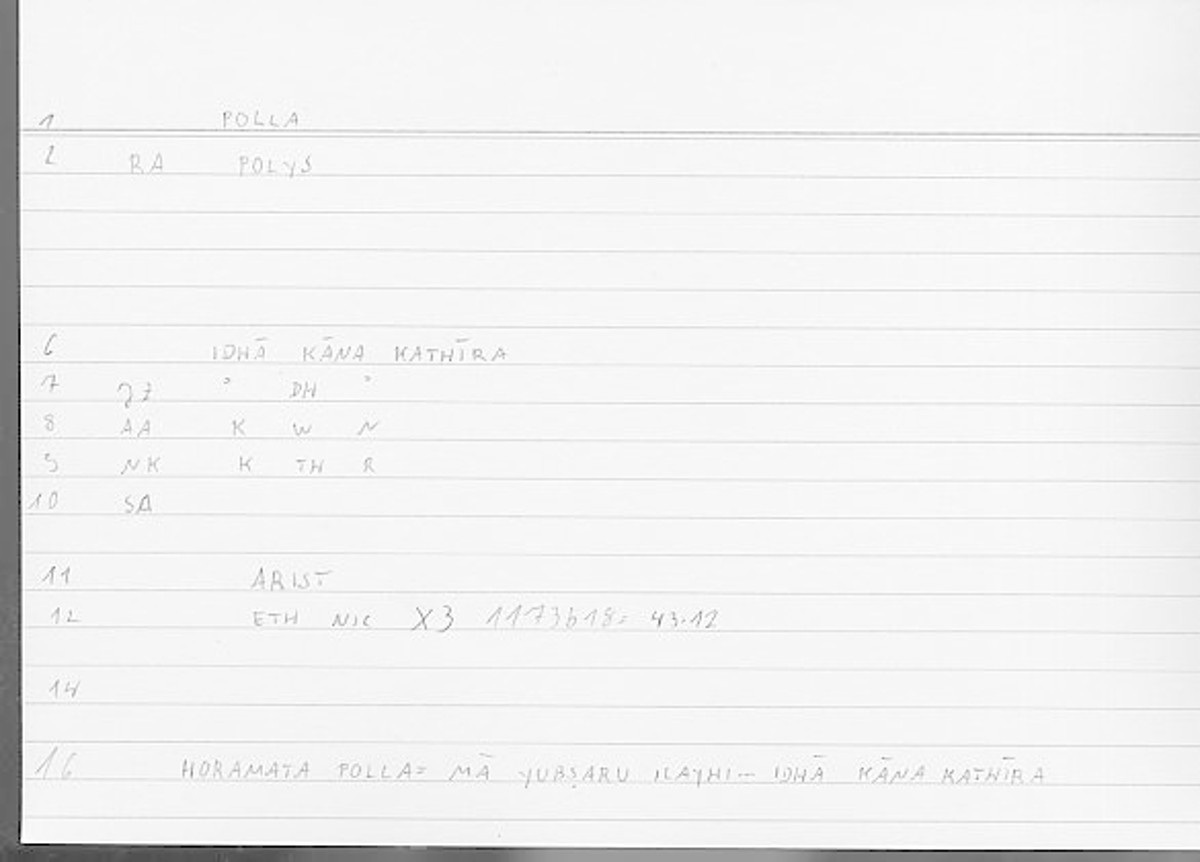 1 POLLA
2 RA POLYS
6 IDHĀ KĀNA KATHĪRA
7 ʾ DH ʾ
8 AA K W N
9 NK K TH R
10 SA
11 ARIST
12 ETH NIC X3 1173b18= 43.12
14
16 HORAMATA POLLA= MĀ YUBṢARU ILAYHI – IDHĀ KĀNA KATHĪRA